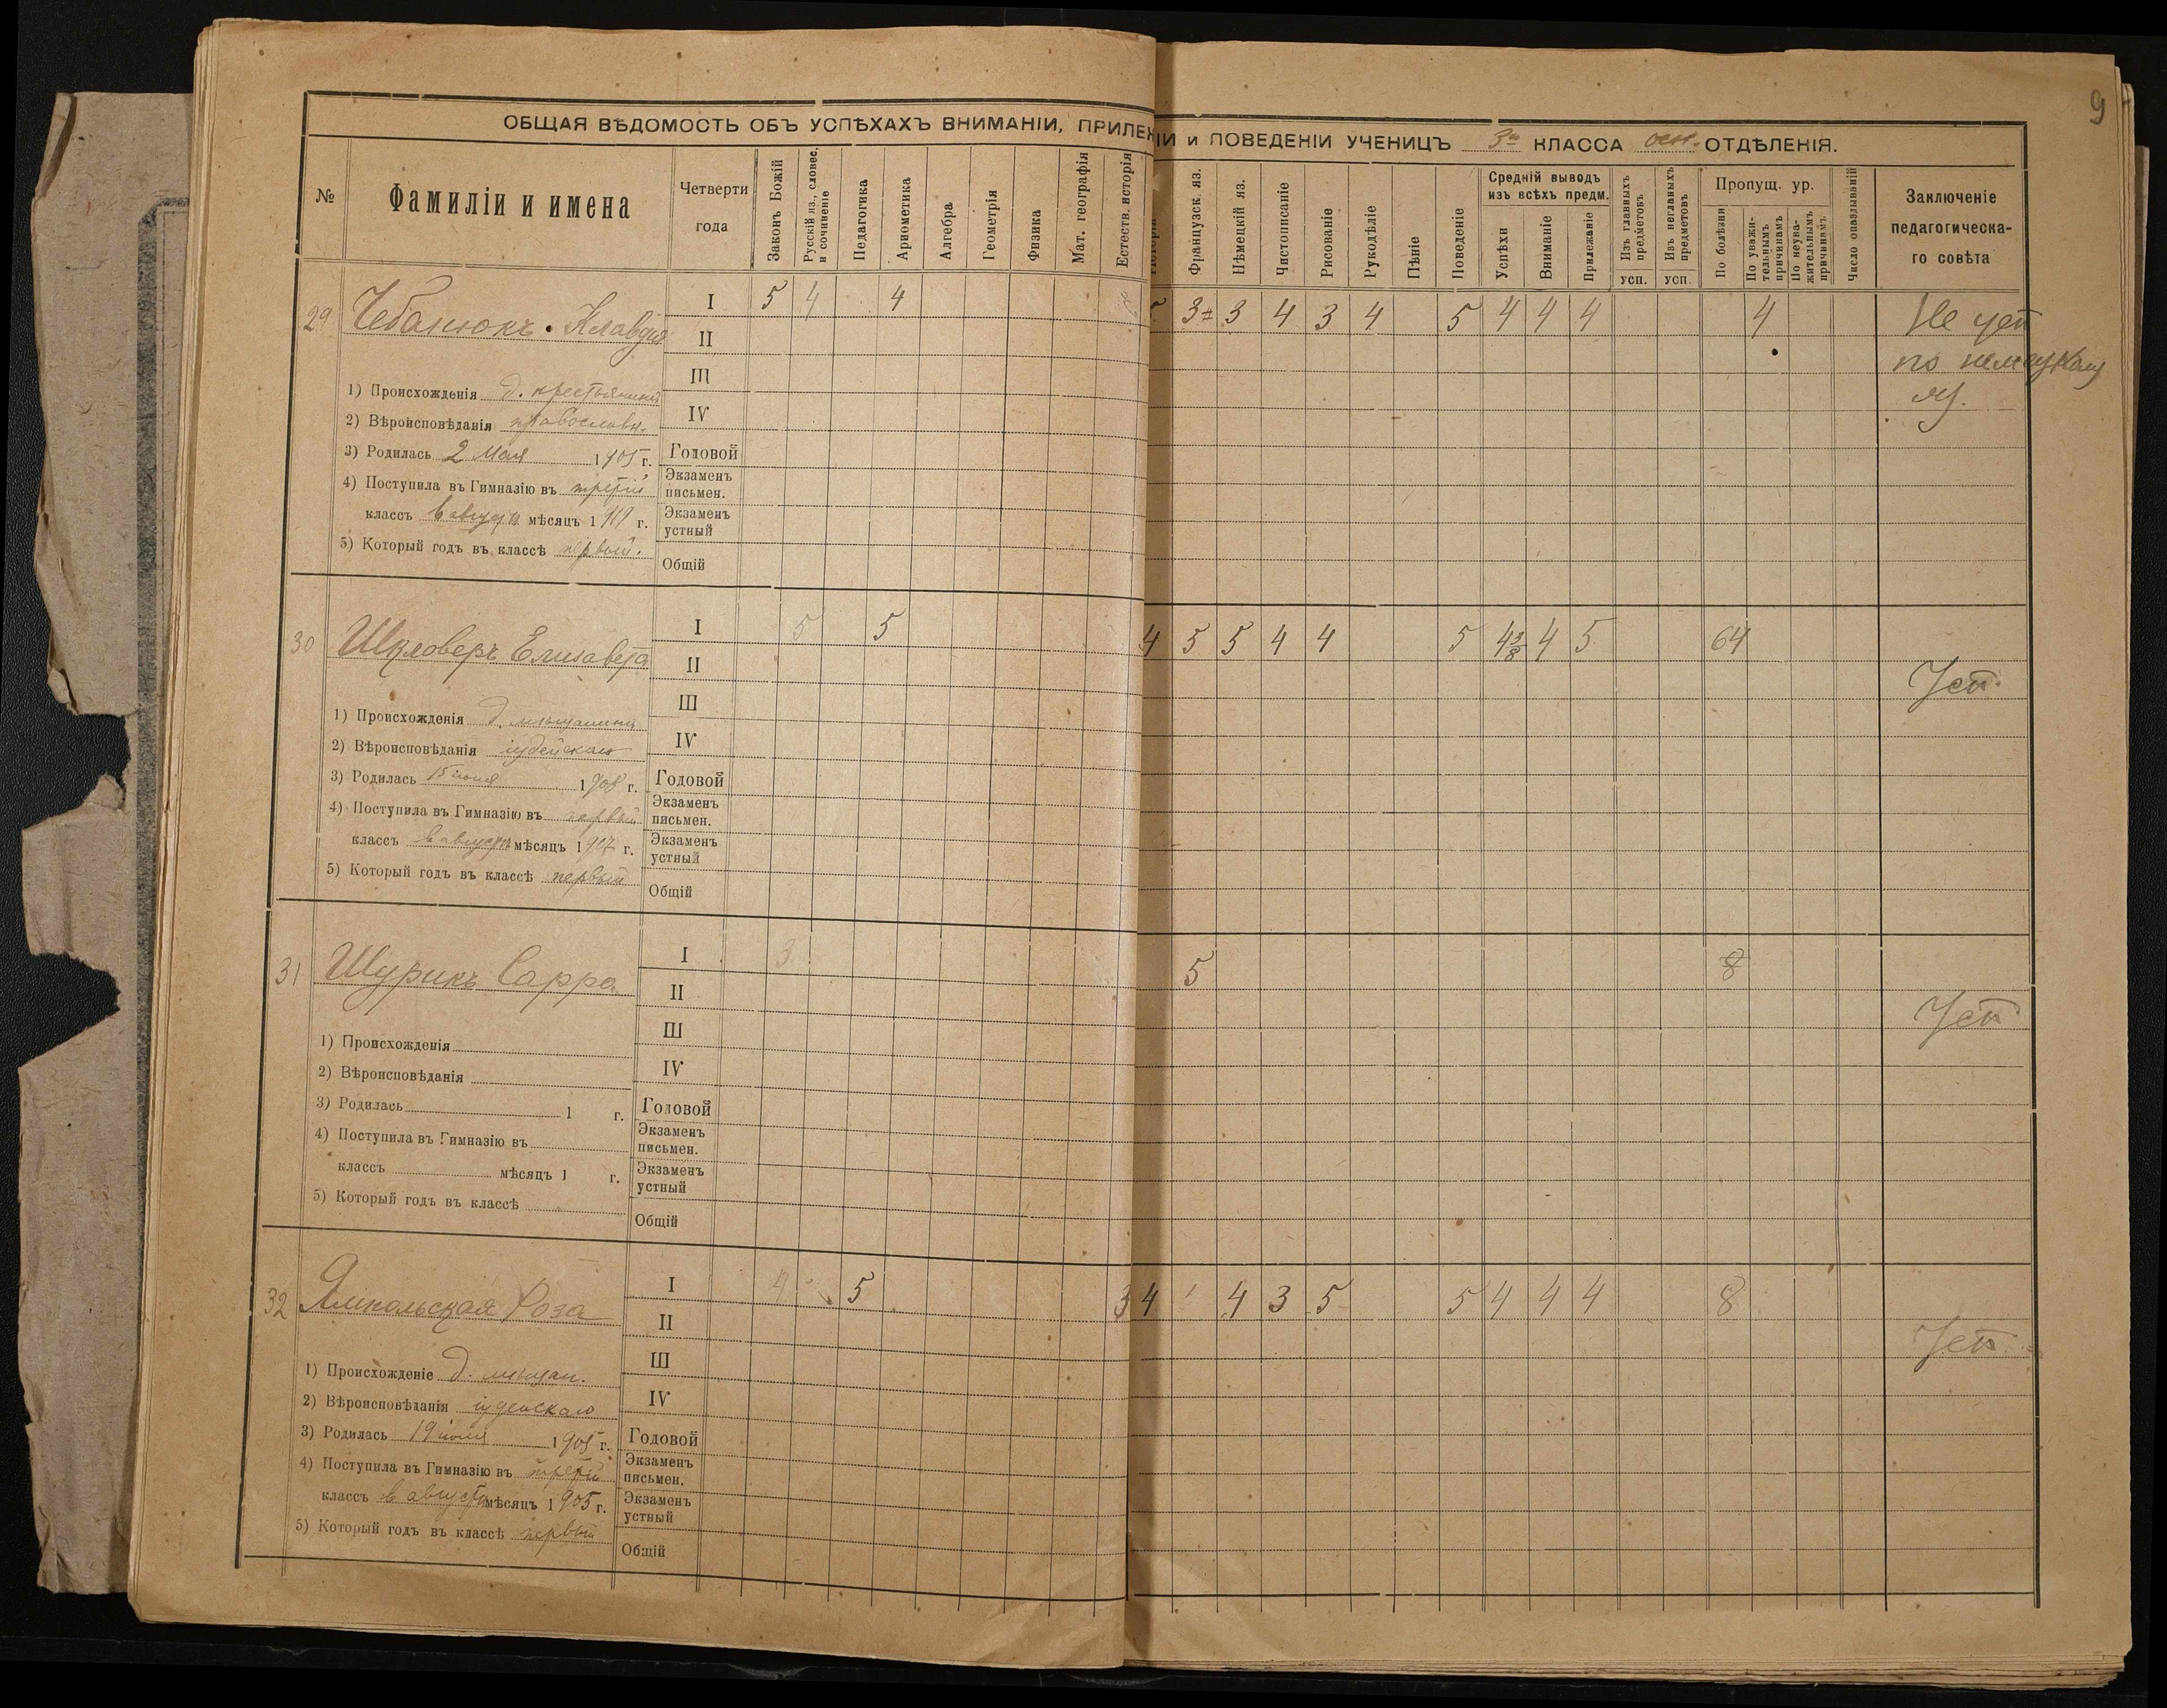 9
ОБЩАЯ ВѢДОМОСТЬ ОБЪ УСПѢХАХЪ ВНИМАНІИ, ПРИЛЕЖ ІИ и ПОВЕДЕНІИ УЧЕНИЦЪ 3го КЛАССА осн. ОТДѢЛЕНІЯ.
№
Фамиліи и имена
Четверти года
Законъ Божій
Русскій яз., словес. и сочиненіе
Педагогика
Ариѳметика
Алгебра
Геометрія
Физика
Мат. географія
Естеств. исторія
Французск. яз.
Нѣмецкій яз.
Чистописаніе
Рисованіе
Рукодѣліе
Пѣніе
Поведеніе
Средній выводъ изъ всѣхъ предм.
Успѣхи
Вниманіе
Прилежаніе
Изъ главныхъ предметовъ
усп.
Изъ неглавныхъ предметовъ
усп.
Пропущ. ур.
По болѣзни
По уважительнымъ причинамъ
По неуважительнымъ причинамъ
Число опаздываній
Заключеніе педагогическаго совѣта
29 Чебанюкъ Клавдія I 5 4 4 5 3± 3 4 3 4 5 4 4 4 4 Не усп
II по немецкому
III яз.
1) Происхожденія д. крестьянина
IV
2) Вѣроисповѣданія православн.
3) Родилась 2 мая 1905 г. Годовой
4) Поступила въ Гимназію въ третій Экзаменъ письмен.
классъ в августѣ мѣсяцъ 1919 г. Экзаменъ устный
5) Который годъ въ классѣ первый. Общій
30 Шкловеръ Елизавета I 5 5 4 5 5 4 4 5 4 3/8 4 5 64
II Усп.
III
1) Происхожденія д. мѣщанина
IV
2) Вѣроисповѣданія іудейскаго
3) Родилась 15 1905 г. Годовой
4) Поступила въ Гимназію въ первый Экзаменъ письмен.
классъ в августѣ мѣсяцъ 1917 г. Экзаменъ устный
5) Который годъ въ классѣ первый Общій
31 Шурикъ Сарра I 3 5 8
II Усп
III
1) Происхожденія
IV
2) Вѣроисповѣданія
3) Родилась 1 г. Годовой
4) Поступила въ Гимназію въ Экзаменъ письмен.
классъ мѣсяцъ 1 г. Экзаменъ устный
5) Который годъ въ классѣ Общій
32 Ямпольская Роза I 4 5 3 4 4 3 5 5 4 4 4 8
II Усп.
III
1) Происхожденіе д. мѣщан.
IV
2) Вѣроисповѣданія іудейскаго
3) Родилась 19 1905 г. Годовой
4) Поступила въ Гимназію въ третій Экзаменъ письмен.
классъ в августѣ мѣсяцъ 1905 г. Экзаменъ устный
5) Который годъ въ классѣ первый Общій